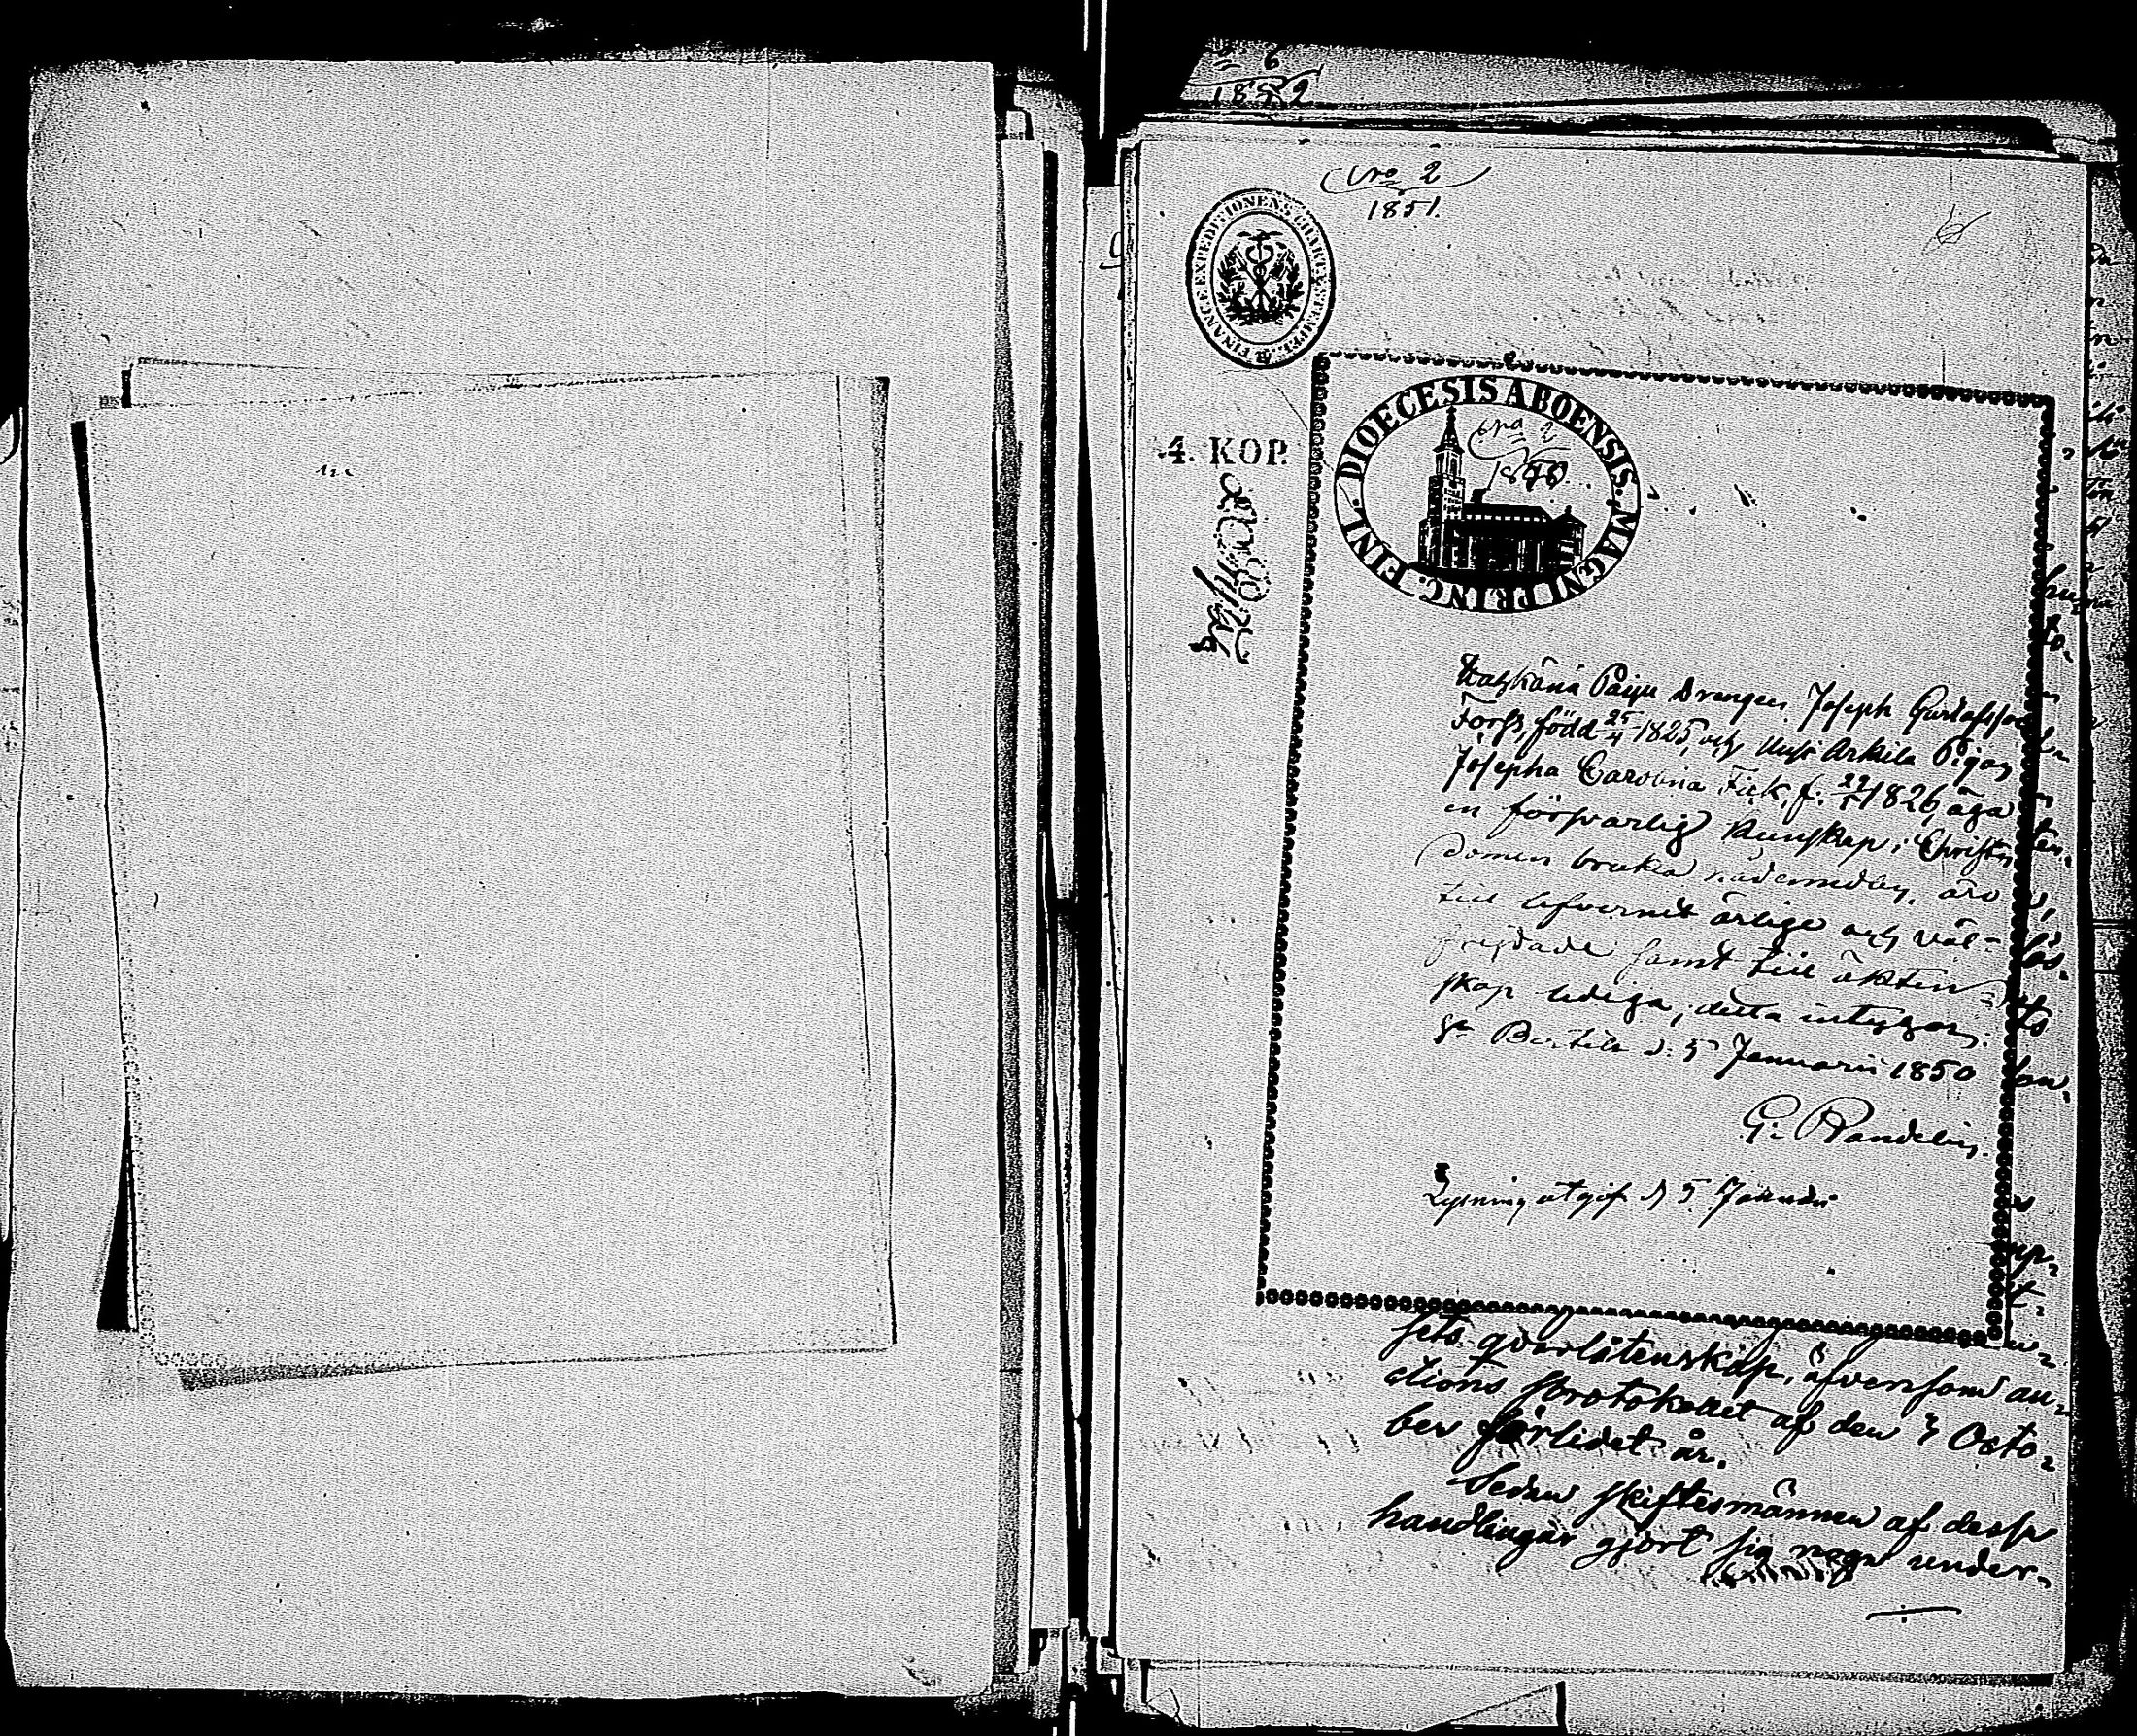 6
1852
Nro 2
1851.
FINANCE EXPEDITIONENS CHARTÆ STEMPEL
4. KOP.
DIOECESIS ABOENSIS. MAGNI PRINC. FINL.
Nro 2
1850
Drengen Joseph Gustafsson
Forss, född 25/4 1825, och Arkila Pigan
Josepha Carolina f. 1826, äga
en försvarlig kunskap i Christen
domen bruka nådemedlen, äro
till lefvernet ärlige och väl-
frejdade samt till äkten-
skap lediga; detta intygar.
St Bertils d. 5 Januarii 1850
G. Randelin.
Lysning utgif. d 5 Januari
sets qvarlåtenskap, äfvensom au-
ctions protokollet af den 7 Octo-
ber förlidet år.
Sedan skiftesmännen af dessa
handlingar gjort sig noga under-